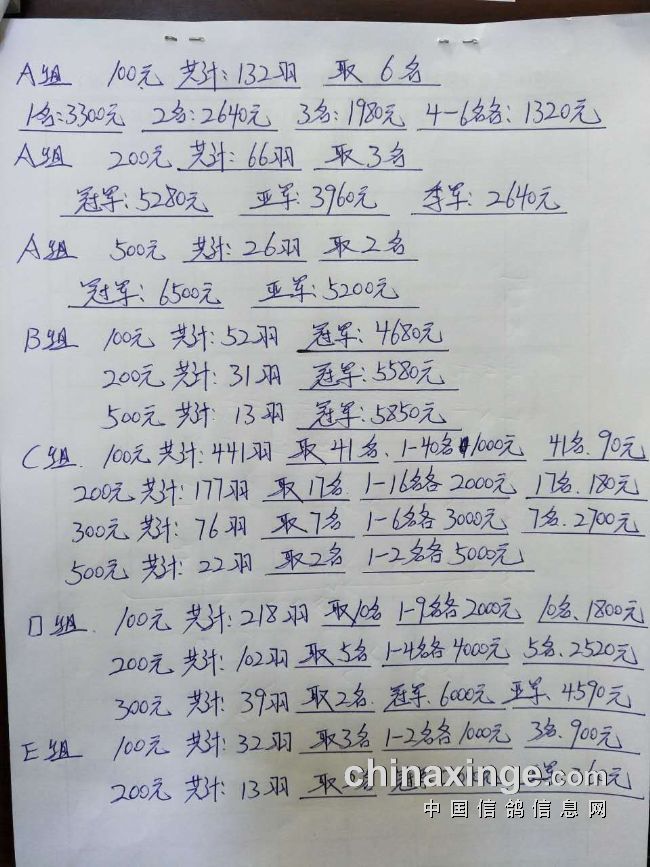 A组 100元 共计:132羽 取6名
1名:3300元 2名:2640元 3名:1980元 4-6名各:1320元
A组 200元 共计:66羽 取3名
冠军:5280元 亚军:3960元 季军:2640元
A组 500元 共计:26羽 取2名
冠军:6500元 亚军:5200元
B组 100元 共计:52羽 冠军:4680元
200元 共计:31羽 冠军:5580元
500元 共计:13羽 冠军:5850元
C组. 100元 共计:441羽 取41名. 1-40名1000元 41名.90元
200元 共计:177羽 取17名. 1-16名各2000元 17名.180元
300元 共计:76羽 取7名 1-6名各3000元 7名.2700元
500元 共计:22羽 取2名 1-2名各5000元
D组. 100元 共计:218羽 取10名 1-9名各2000元 10名.1800元
200元 共计:102羽 取5名 1-4名各4000元 5名.2520元
300元 共计:39羽 取2名. 冠军.6000元 亚军.4590元
E组 100元 共计:32羽 取3名 1-2名各1000元 3名.900元
200元 共计:13羽
chinaxinge.com
中国信鸽信息网